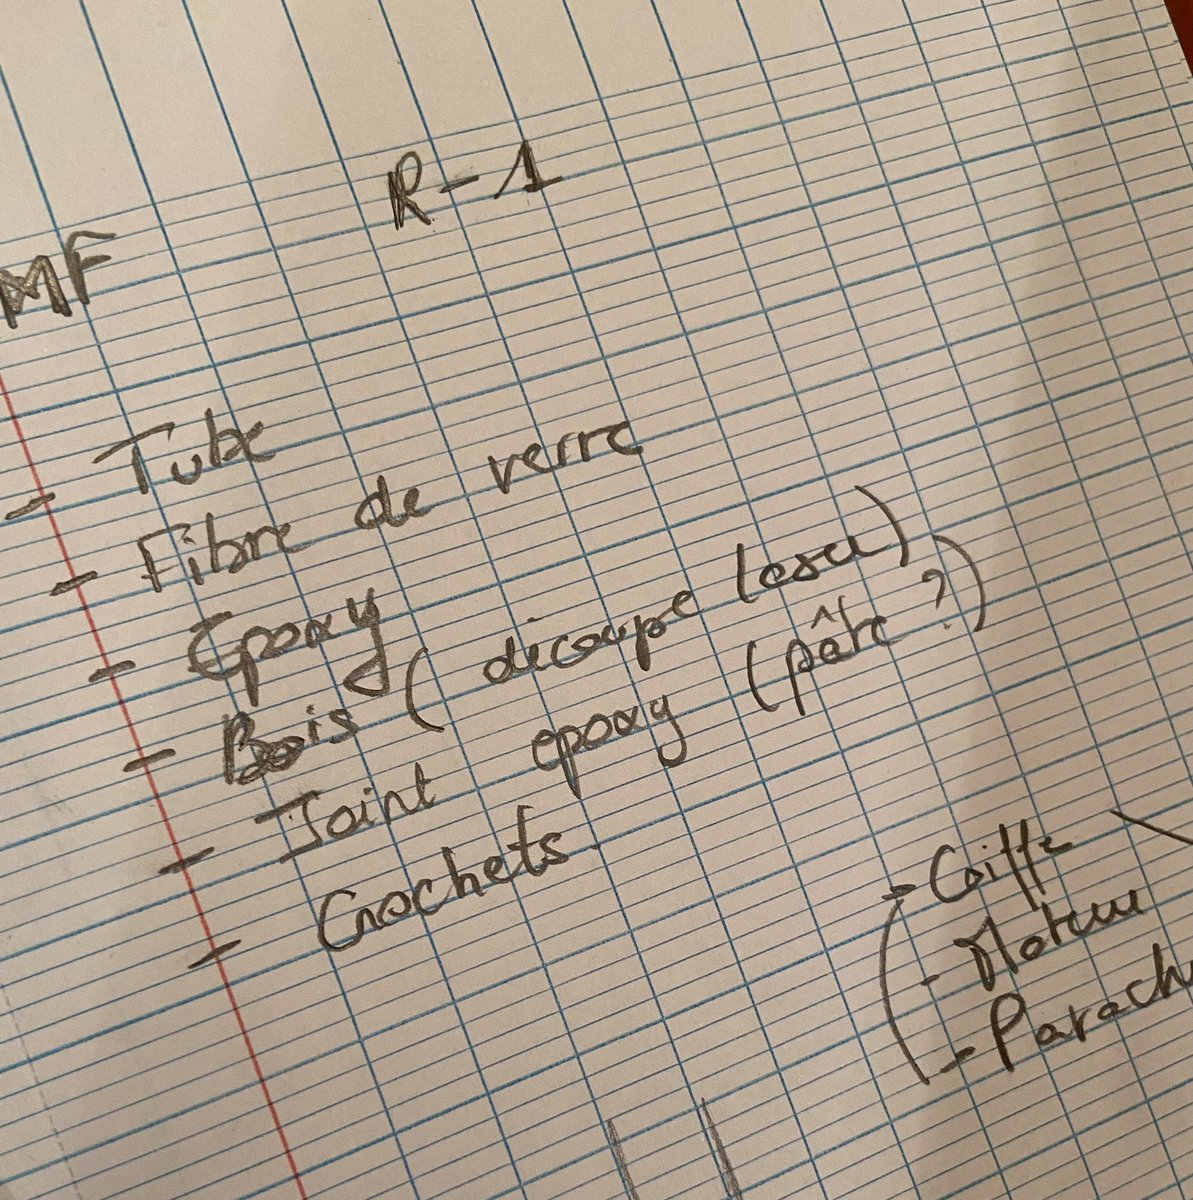 R-1
MF
- Tube
- Fibre de verre
- Epoxy
- Bois ( découpe laser)
- Joint epoxy (pâte ?)
- Crochets
- Coiffe
- Moteur
- Parach